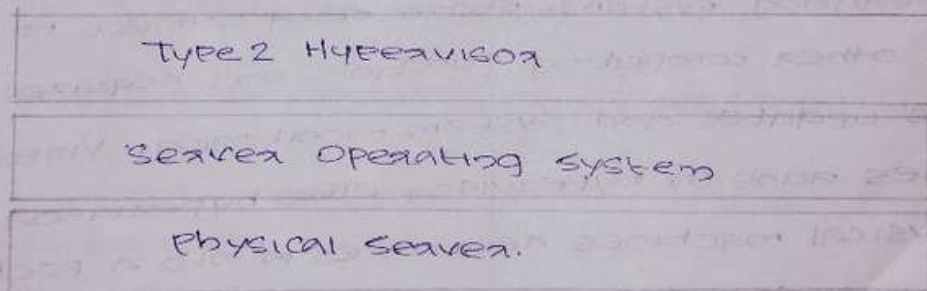 Type 2 Hypervisor
Server Operating System
Physical Server.